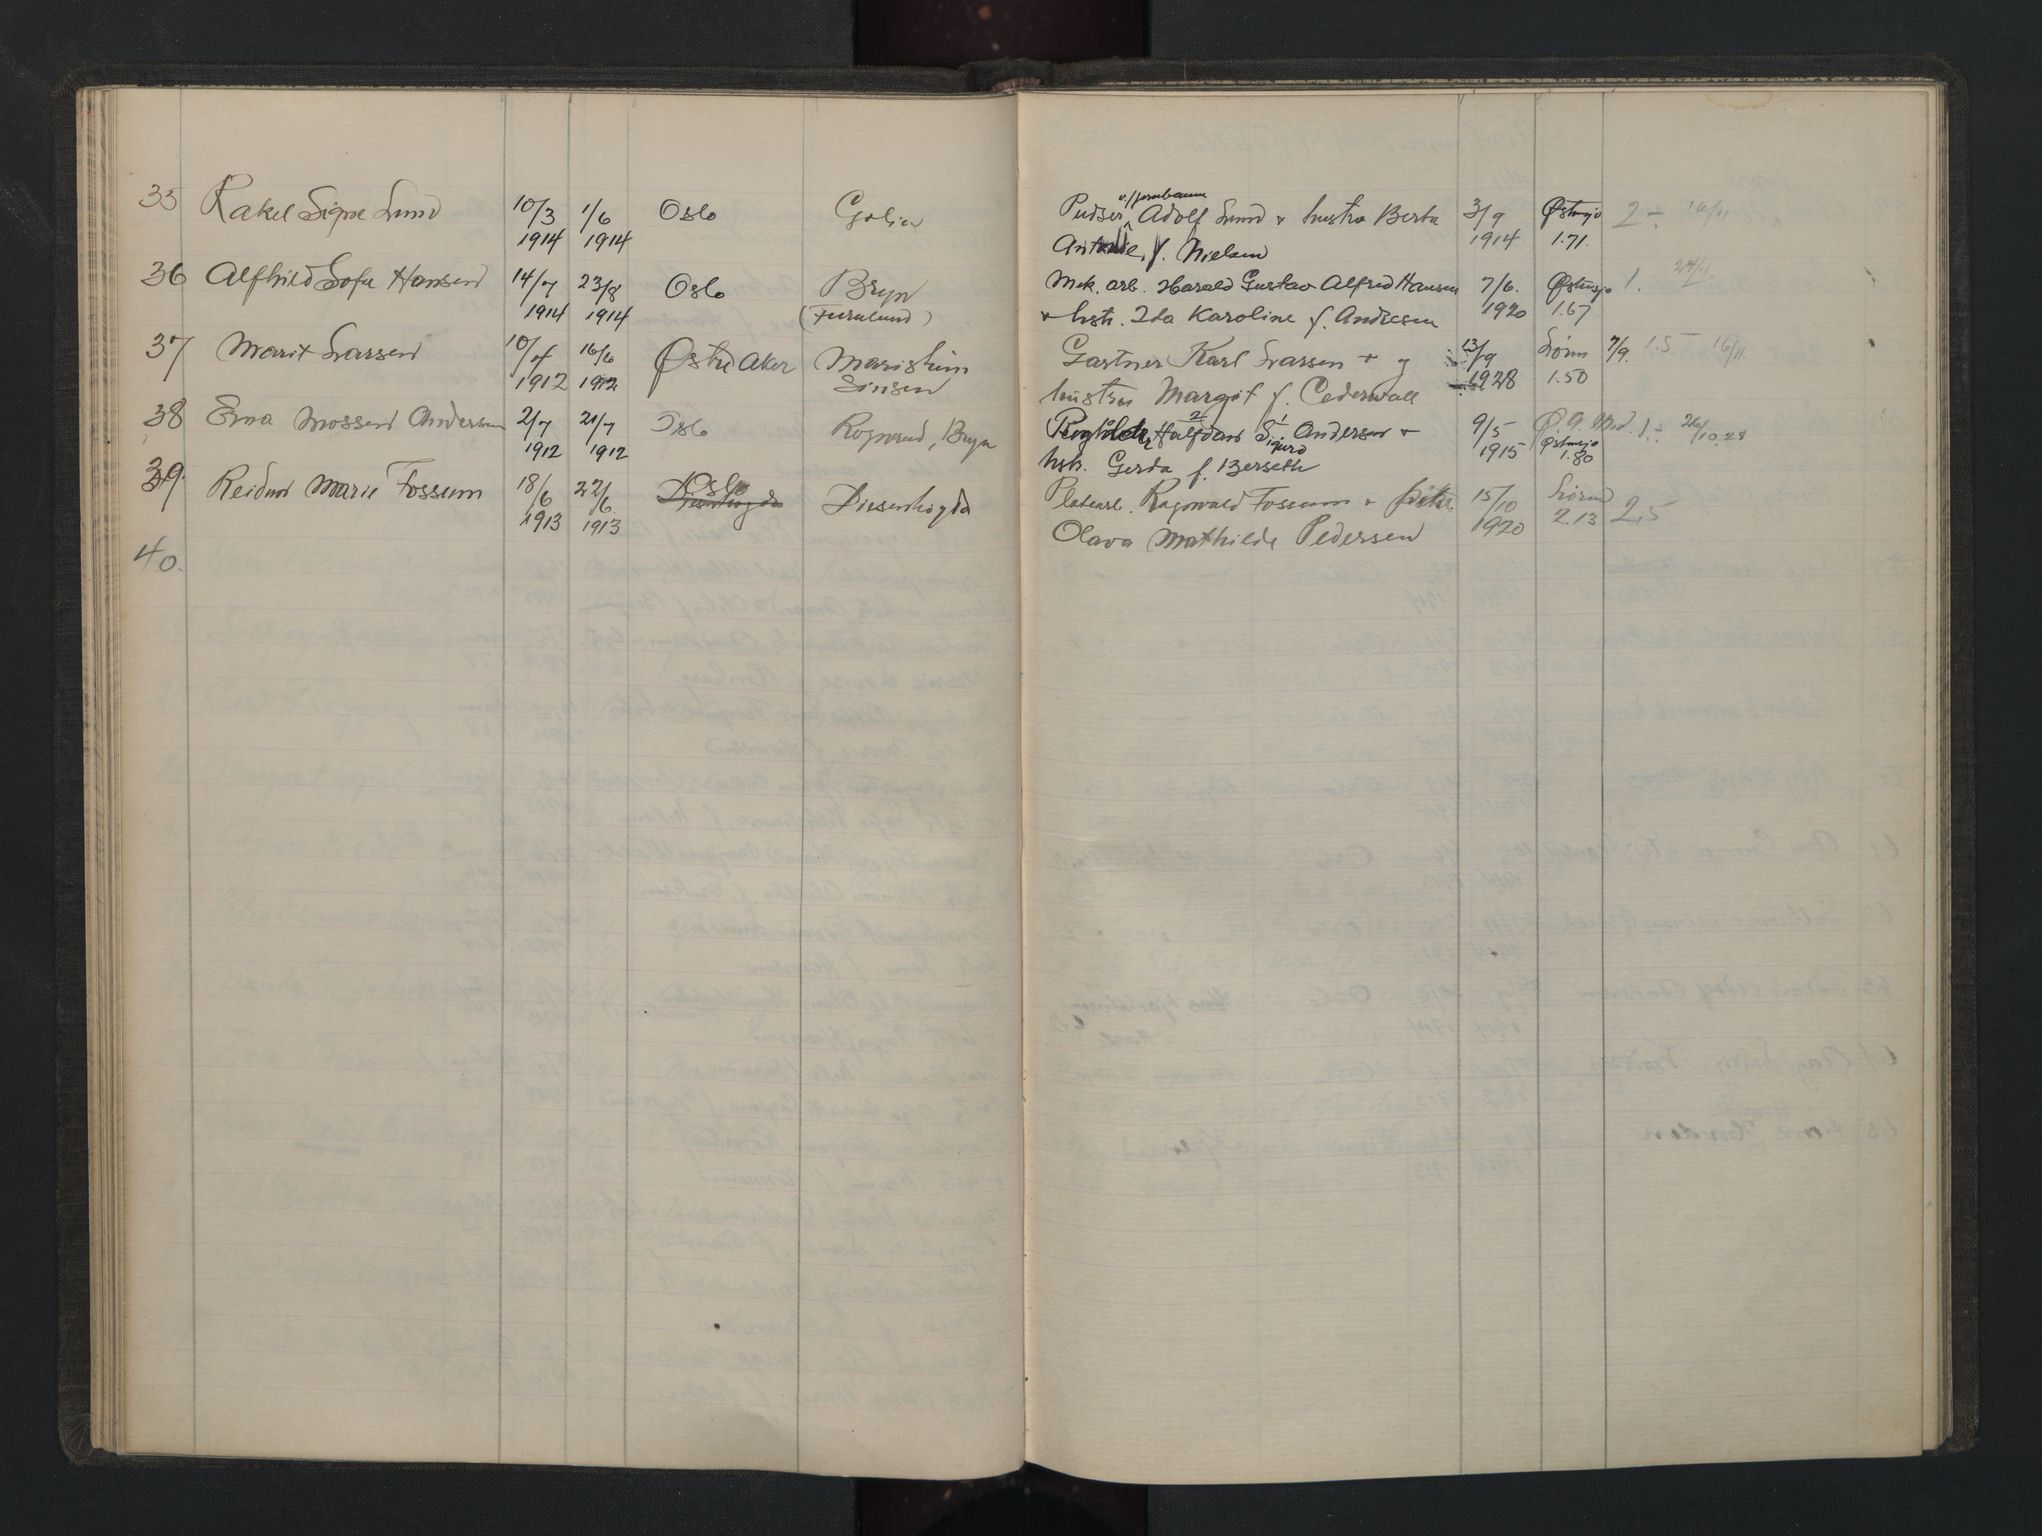 35 Rakel Signe Lund 10/3 1/6 Oslo Golia Pudser v/jernbanen Adolf Lund + hustru Berta 3/9 Østensjø 2 ÷ 16/11
1914 1914 Antonie, f. Nielsen 1914 1.71.
36 Alfhild Sofie Hansen 14/7 23/8 Oslo Bryn Mek. arb. Harald Gustav Alfred Hansen 7/6. Østensjø 1. 24/11
1914 1914 (Furulund) + hstr. Ida Karoline f. Andresen 1920 1.67
37 Marit Larsen 10/4 16/6 Østre Aker Marisheim Gartner Karl Larsen + 13/9 Lørn 7/9. 1.5 16/11.
1912 1912 Sinsen hustru Margit f. Cederwall 1928 1.50
38 Erna Mossen Andersen 2/7 21/7 Oslo Rognerud, Bryn Halfdan Sigurd Andersen + 9/5 1 ÷ 26/10.28
1912 1912 hstr. Gerda f. Berseth 1915 Østensjø 1.80
39. Reidun Marie Fossum 18/6 22/6 Oslo Disenhøgda Platearb. Ragnvald Fossum + 15/10 Løren 2,5
1913 1913 Olava Mathilde Pedersen 1920 2.13
40.